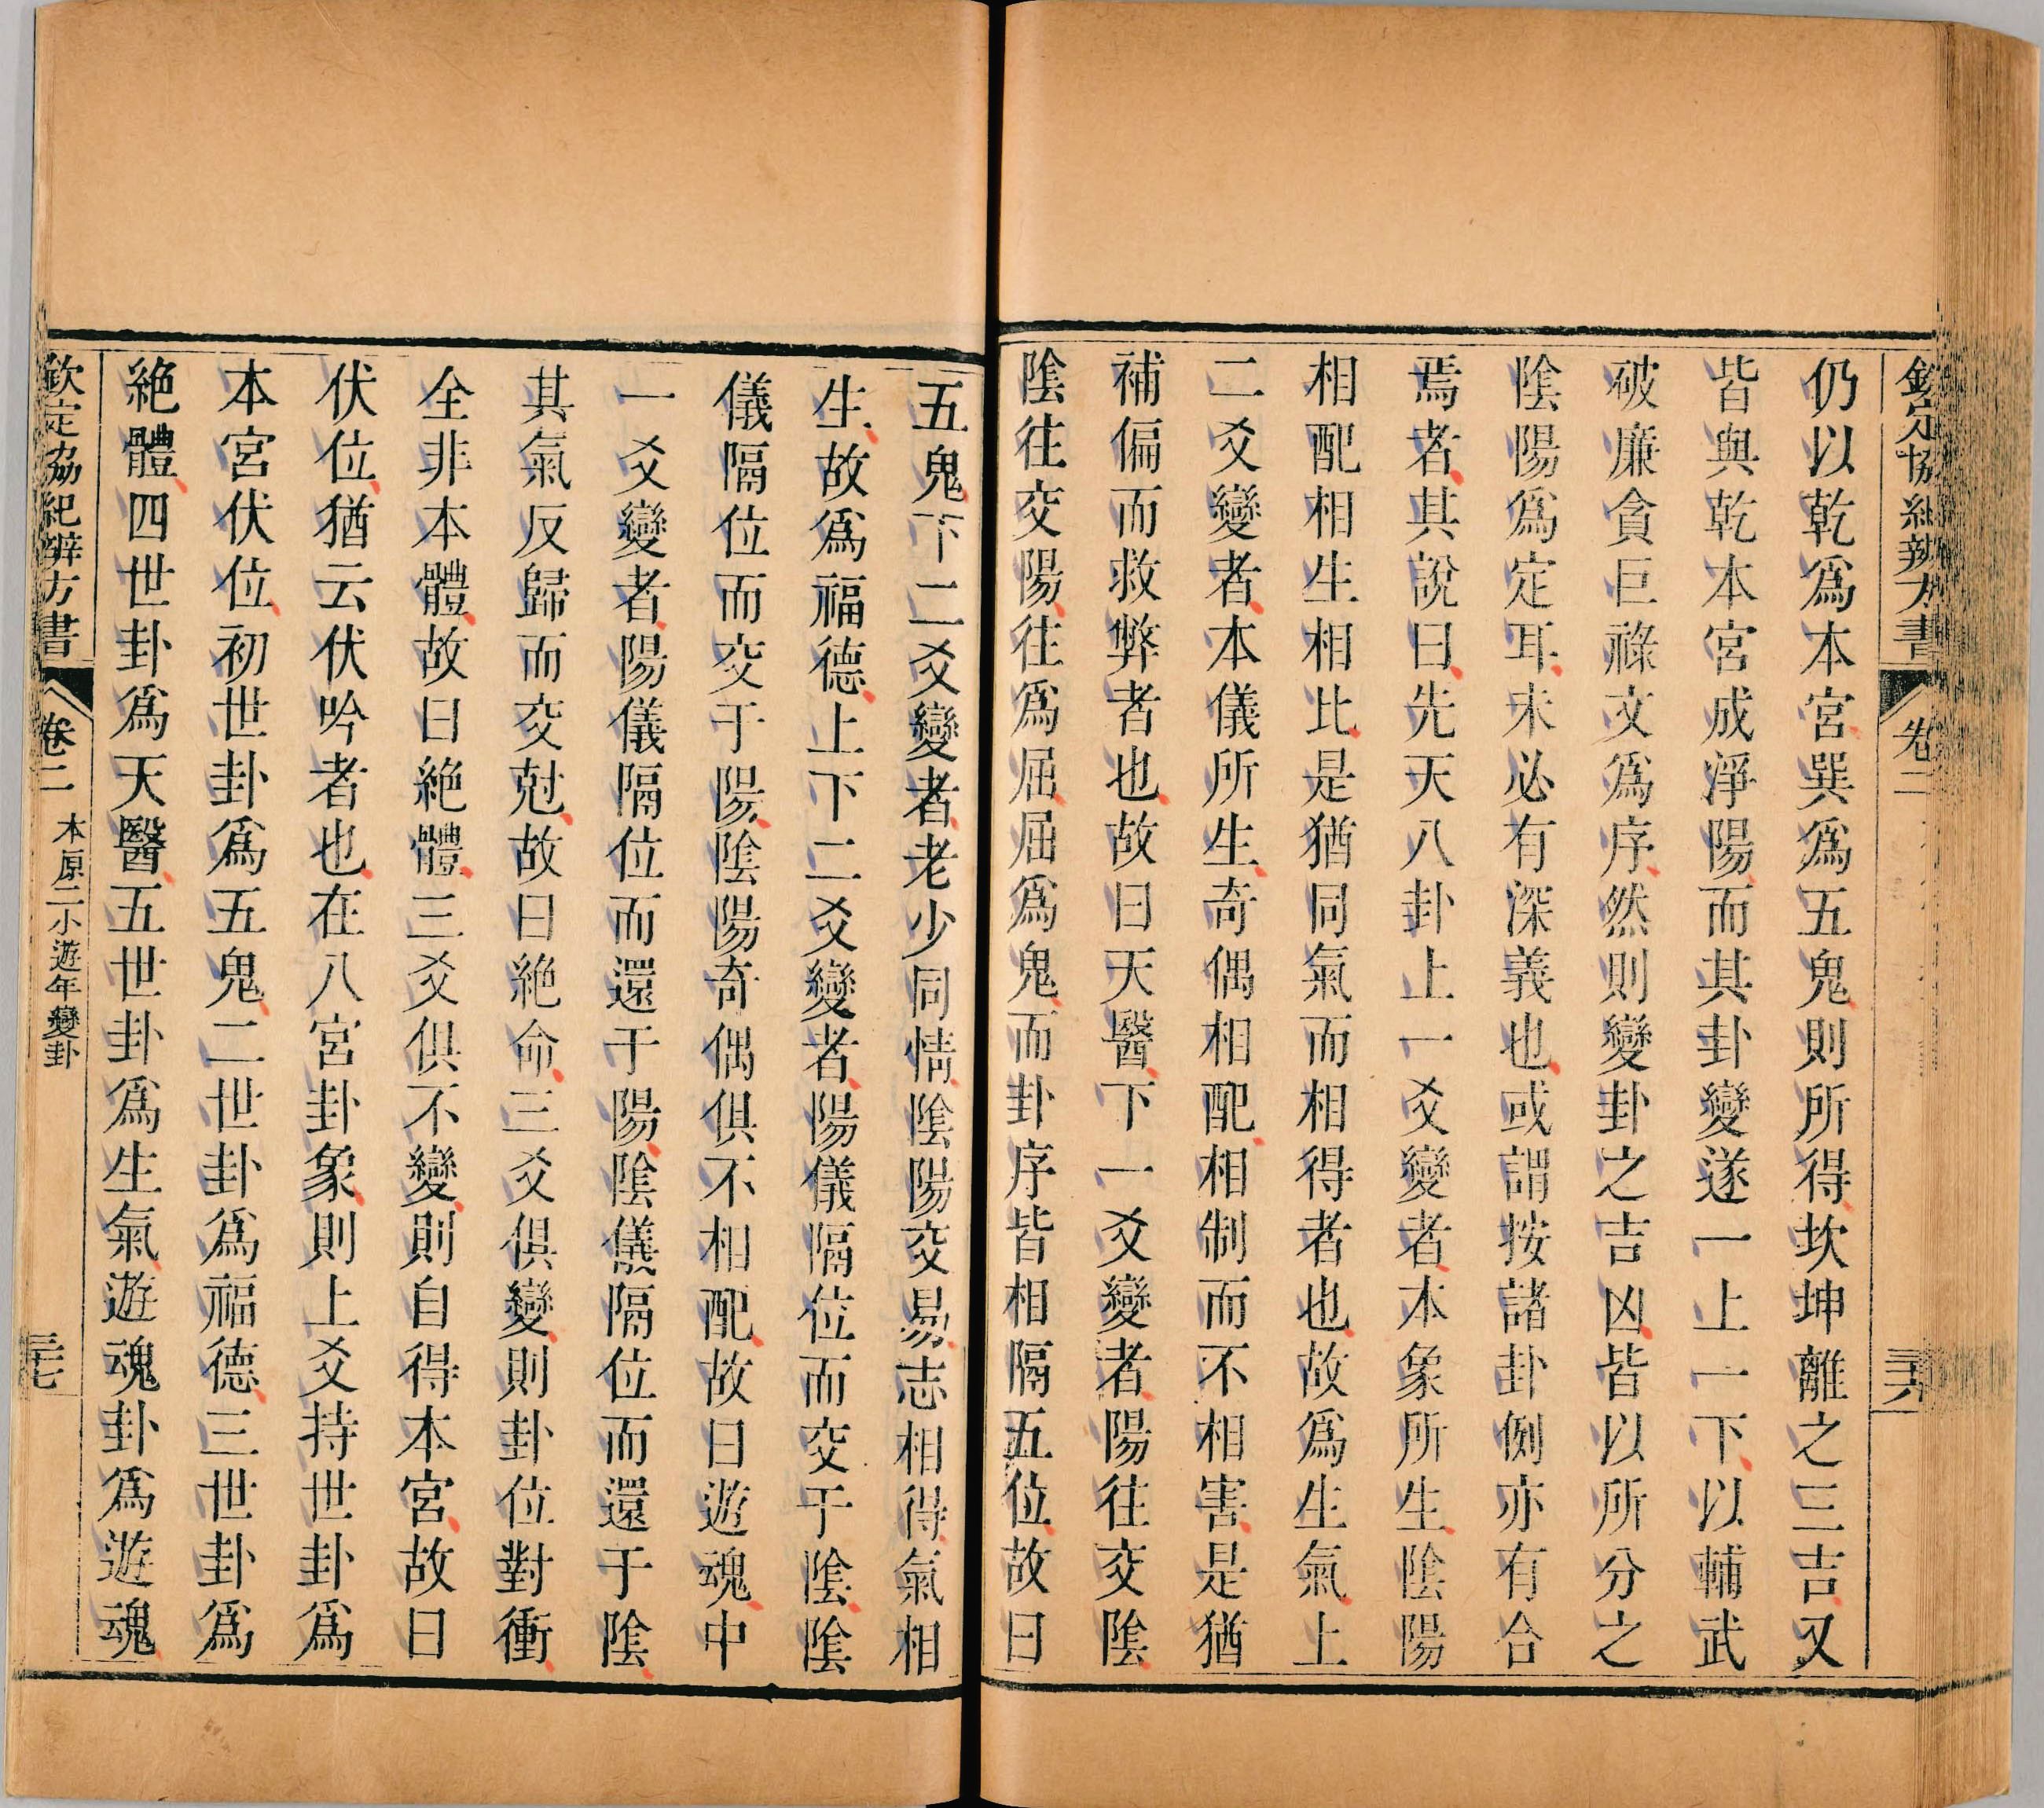 欽定協紀辨方書　卷二　三十六
仍以乾爲本宮巽爲五鬼則所得坎坤離之三吉又
皆與乾本宮成淨陽而其卦變遂一上一下以輔武
破廉貪巨祿文爲序然則變卦之吉凶皆以所分之
陰陽爲定耳未必有深義也或謂按諸卦例亦有合
焉者其說曰先天八卦上一爻變者本象所生陰陽
相配相生相比是猶同氣而相得者也故爲生氣上
二爻變者本儀所生奇偶相配相制而不相害是猶
補偏而救弊者也故曰天醫下一爻變者陽往交陰
陰往交陽往爲屈屈爲鬼而卦序皆相隔五位故曰
五鬼下二爻變者老少同情陰陽交易志相得氣相
生故爲福德上下二爻變者陽儀隔位而交于陰陰
儀隔位而交于陽陰陽奇偶俱不相配故曰遊魂中
一爻變者陽儀隔位而還于陽陰儀隔位而還于陰
其氣反歸而交尅故曰絶命三爻俱變則卦位對衝
全非本體故曰絶體三爻俱不變則自得本宮故曰
伏位猶云伏吟者也在八宮卦象則上爻持世卦爲
本宮伏位初世卦爲五鬼二世卦爲福德三世卦爲
絶體四世卦爲天醫五世卦爲生氣遊魂卦爲遊魂
欽定協紀辨方書　卷二　本原二小遊年變卦　三十七